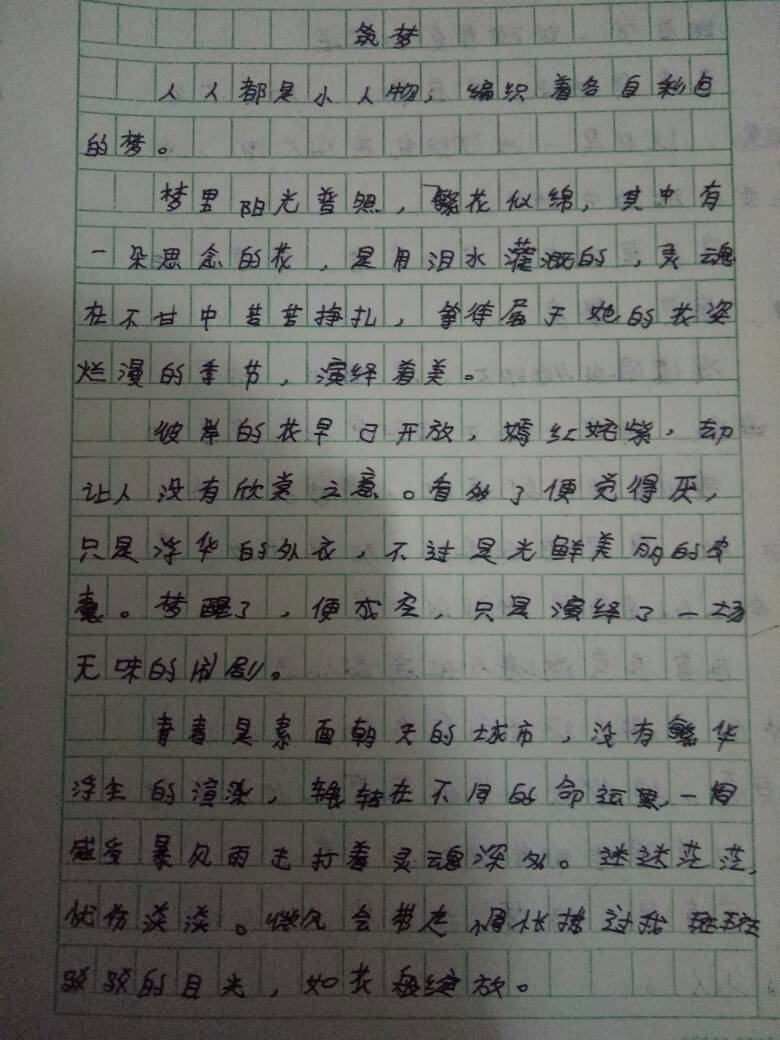 筑梦
人人都是小人物，编织着各自彩色
的梦。
梦里阳光普照，繁花似绵，其中有
一朵思念的花，是用泪水灌溉的，灵魂
在不甘中苦苦挣扎，等待属于她的花姿
烂漫的季节，演绎着美。
彼岸的花早已开放，嫣红姹紫，却
让人没有欣赏之意。看多了便觉得厌，
只是浮华的外衣，不过是光鲜美丽的皮
囊。梦醒了，便成空，只是演绎了一场
无味的闹剧。
青春是素面朝天的城市，没有繁华
浮生的渲染，辗转在不同的命运里，一同
感受暴风雨击打着灵魂深处。迷迷茫茫，
忧伤淡淡。微风会带走惆怅拂过我斑斑
驳驳的目光，如花般绽放。